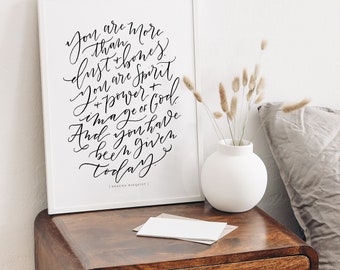 You are more
than
dust + bones.
You are spirit
+ power +
image of God.
And you have
been given
today.